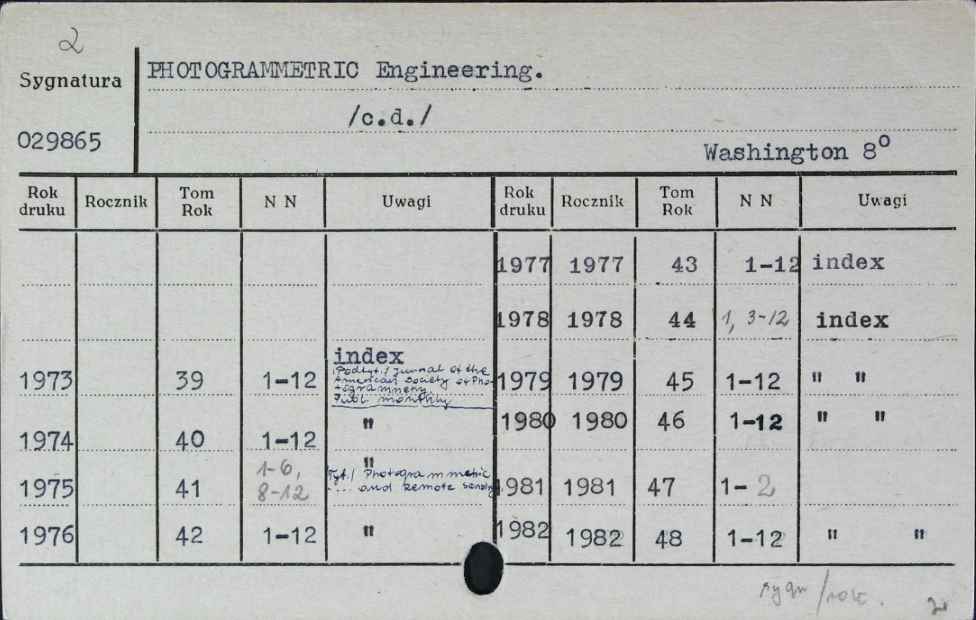 2
Sygnatura
029865
PHOTOGRAMMETRIC Engineering.
/c.d./
Washington 8°
Rok druku Rocznik Tom Rok N N Uwagi Rok druku Rocznik Tom Rok N N Uwagi
1977 1977 43 1-12 index
1978 1978 44 1, 3-12 index
index
1973 39 1-12 /Podtyt./ Jurnal of the
American Society of Pho-
togrammery
Publ. monthly
1979 1979 45 1-12 " "
1974 40 1-12 "
1980 1980 46 1-12 " "
"
1975 41 1-6,
8-12
Tyt./ Photogrammetric
... and Remote Sensing
1981 1981 47 1-2
1976 42 1-12 "
1982 1982 48 1-12 " "
sygn/rok.